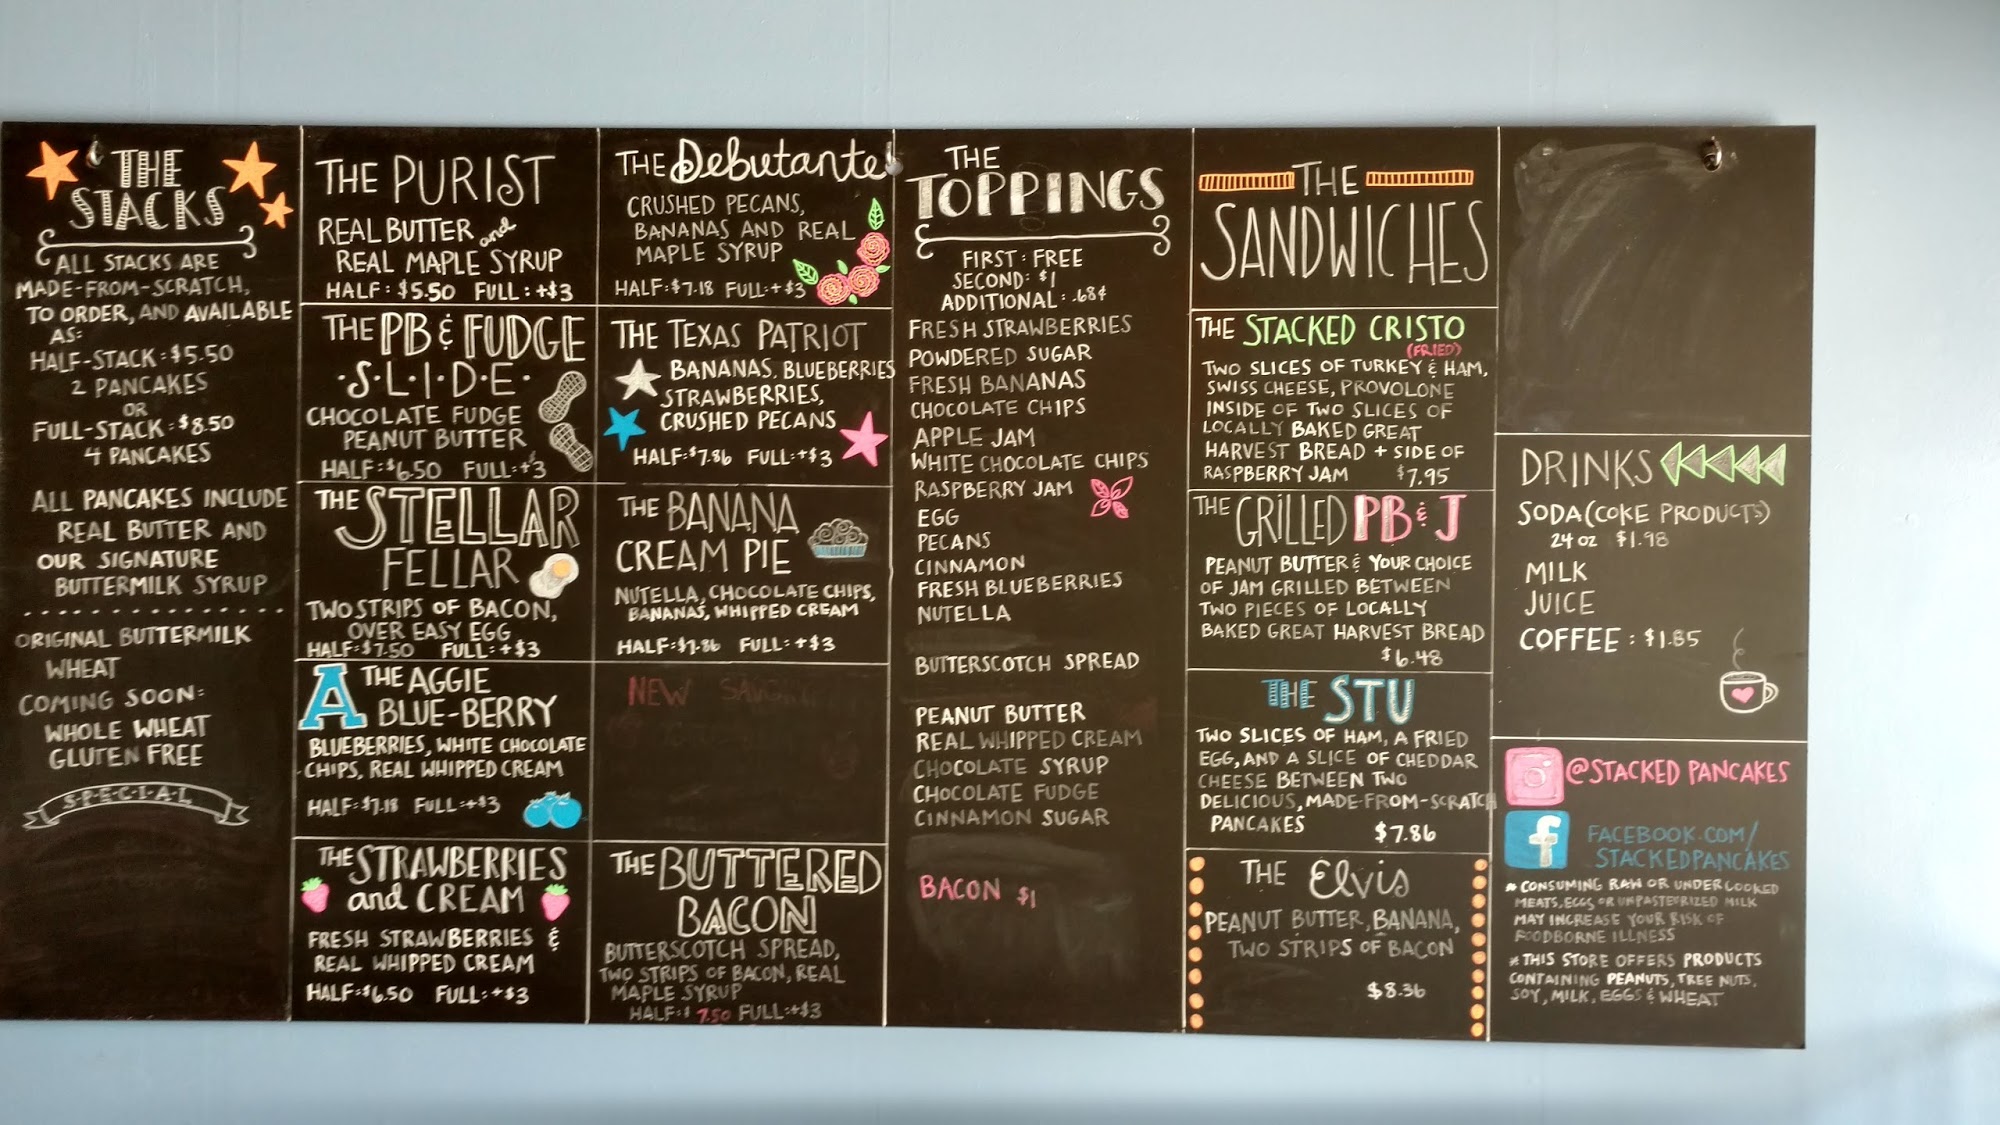 THE
STACKS
ALL STACKS ARE
MADE-FROM-SCRATCH,
TO ORDER, AND AVAILABLE
AS:
HALF-STACK: $5.50
2 PANCAKES
OR
FULL-STACK: $8.50
4 PANCAKES
ALL PANCAKES INCLUDE
REAL BUTTER AND
OUR SIGNATURE
BUTTERMILK SYRUP
ORIGINAL BUTTERMILK
WHEAT
COMING SOON:
WHOLE WHEAT
GLUTEN FREE
S·P·E·C·I·A·L
THE PURIST
REAL BUTTER and
REAL MAPLE SYRUP
HALF: $5.50 FULL: +$3
THE PB & FUDGE
·S·L·I·D·E·
CHOCOLATE FUDGE
PEANUT BUTTER
HALF: $6.50 FULL: +$3
THE
STELLAR
FELLAR
TWO STRIPS OF BACON,
OVER EASY EGG
HALF: $7.50 FULL: +$3
A THE AGGIE
BLUE-BERRY
BLUEBERRIES, WHITE CHOCOLATE
CHIPS, REAL WHIPPED CREAM
HALF: $7.18 FULL: +$3
THE STRAWBERRIES
and CREAM
FRESH STRAWBERRIES &
REAL WHIPPED CREAM
HALF: $6.50 FULL: +$3
THE Debutante
CRUSHED PECANS,
BANANAS AND REAL
MAPLE SYRUP
HALF: $7.18 FULL: +$3
THE TEXAS PATRIOT
BANANAS, BLUEBERRIES
STRAWBERRIES,
CRUSHED PECANS
HALF: $7.86 FULL: +$3
THE BANANA
CREAM PIE
NUTELLA, CHOCOLATE CHIPS,
BANANAS, WHIPPED CREAM
HALF: $7.86 FULL: +$3
NEW
THE BUTTERED
BACON
BUTTERSCOTCH SPREAD,
TWO STRIPS OF BACON, REAL
MAPLE SYRUP
HALF: $ 7.50 FULL: +$3
THE
TOPPINGS
FIRST: FREE
SECOND: $1
ADDITIONAL: .68¢
FRESH STRAWBERRIES
POWDERED SUGAR
FRESH BANANAS
CHOCOLATE CHIPS
APPLE JAM
WHITE CHOCOLATE CHIPS
RASPBERRY JAM
EGG
PECANS
CINNAMON
FRESH BLUEBERRIES
NUTELLA
BUTTERSCOTCH SPREAD
PEANUT BUTTER
REAL WHIPPED CREAM
CHOCOLATE SYRUP
CHOCOLATE FUDGE
CINNAMON SUGAR
BACON $1
THE
SANDWICHES
THE STACKED CRISTO
(FRIED)
TWO SLICES OF TURKEY & HAM,
SWISS CHEESE, PROVOLONE
INSIDE OF TWO SLICES OF
LOCALLY BAKED GREAT
HARVEST BREAD + SIDE OF
RASPBERRY JAM $7.95
THE GRILLED PB & J
PEANUT BUTTER & YOUR CHOICE
OF JAM GRILLED BETWEEN
TWO PIECES OF LOCALLY
BAKED GREAT HARVEST BREAD
$6.48
THE STU
TWO SLICES OF HAM, A FRIED
EGG, AND A SLICE OF CHEDDAR
CHEESE BETWEEN TWO
DELICIOUS, MADE-FROM-SCRATCH
PANCAKES $7.86
THE Elvis
PEANUT BUTTER, BANANA,
TWO STRIPS OF BACON
$8.36
DRINKS
SODA (COKE PRODUCTS)
24 OZ $1.98
MILK
JUICE
COFFEE: $1.85
@STACKED PANCAKES
f FACEBOOK.COM/
STACKEDPANCAKES
* CONSUMING RAW OR UNDERCOOKED
MEATS, EGGS OR UNPASTEURIZED MILK
MAY INCREASE YOUR RISK OF
FOODBORNE ILLNESS
* THIS STORE OFFERS PRODUCTS
CONTAINING PEANUTS, TREE NUTS,
SOY, MILK, EGGS & WHEAT